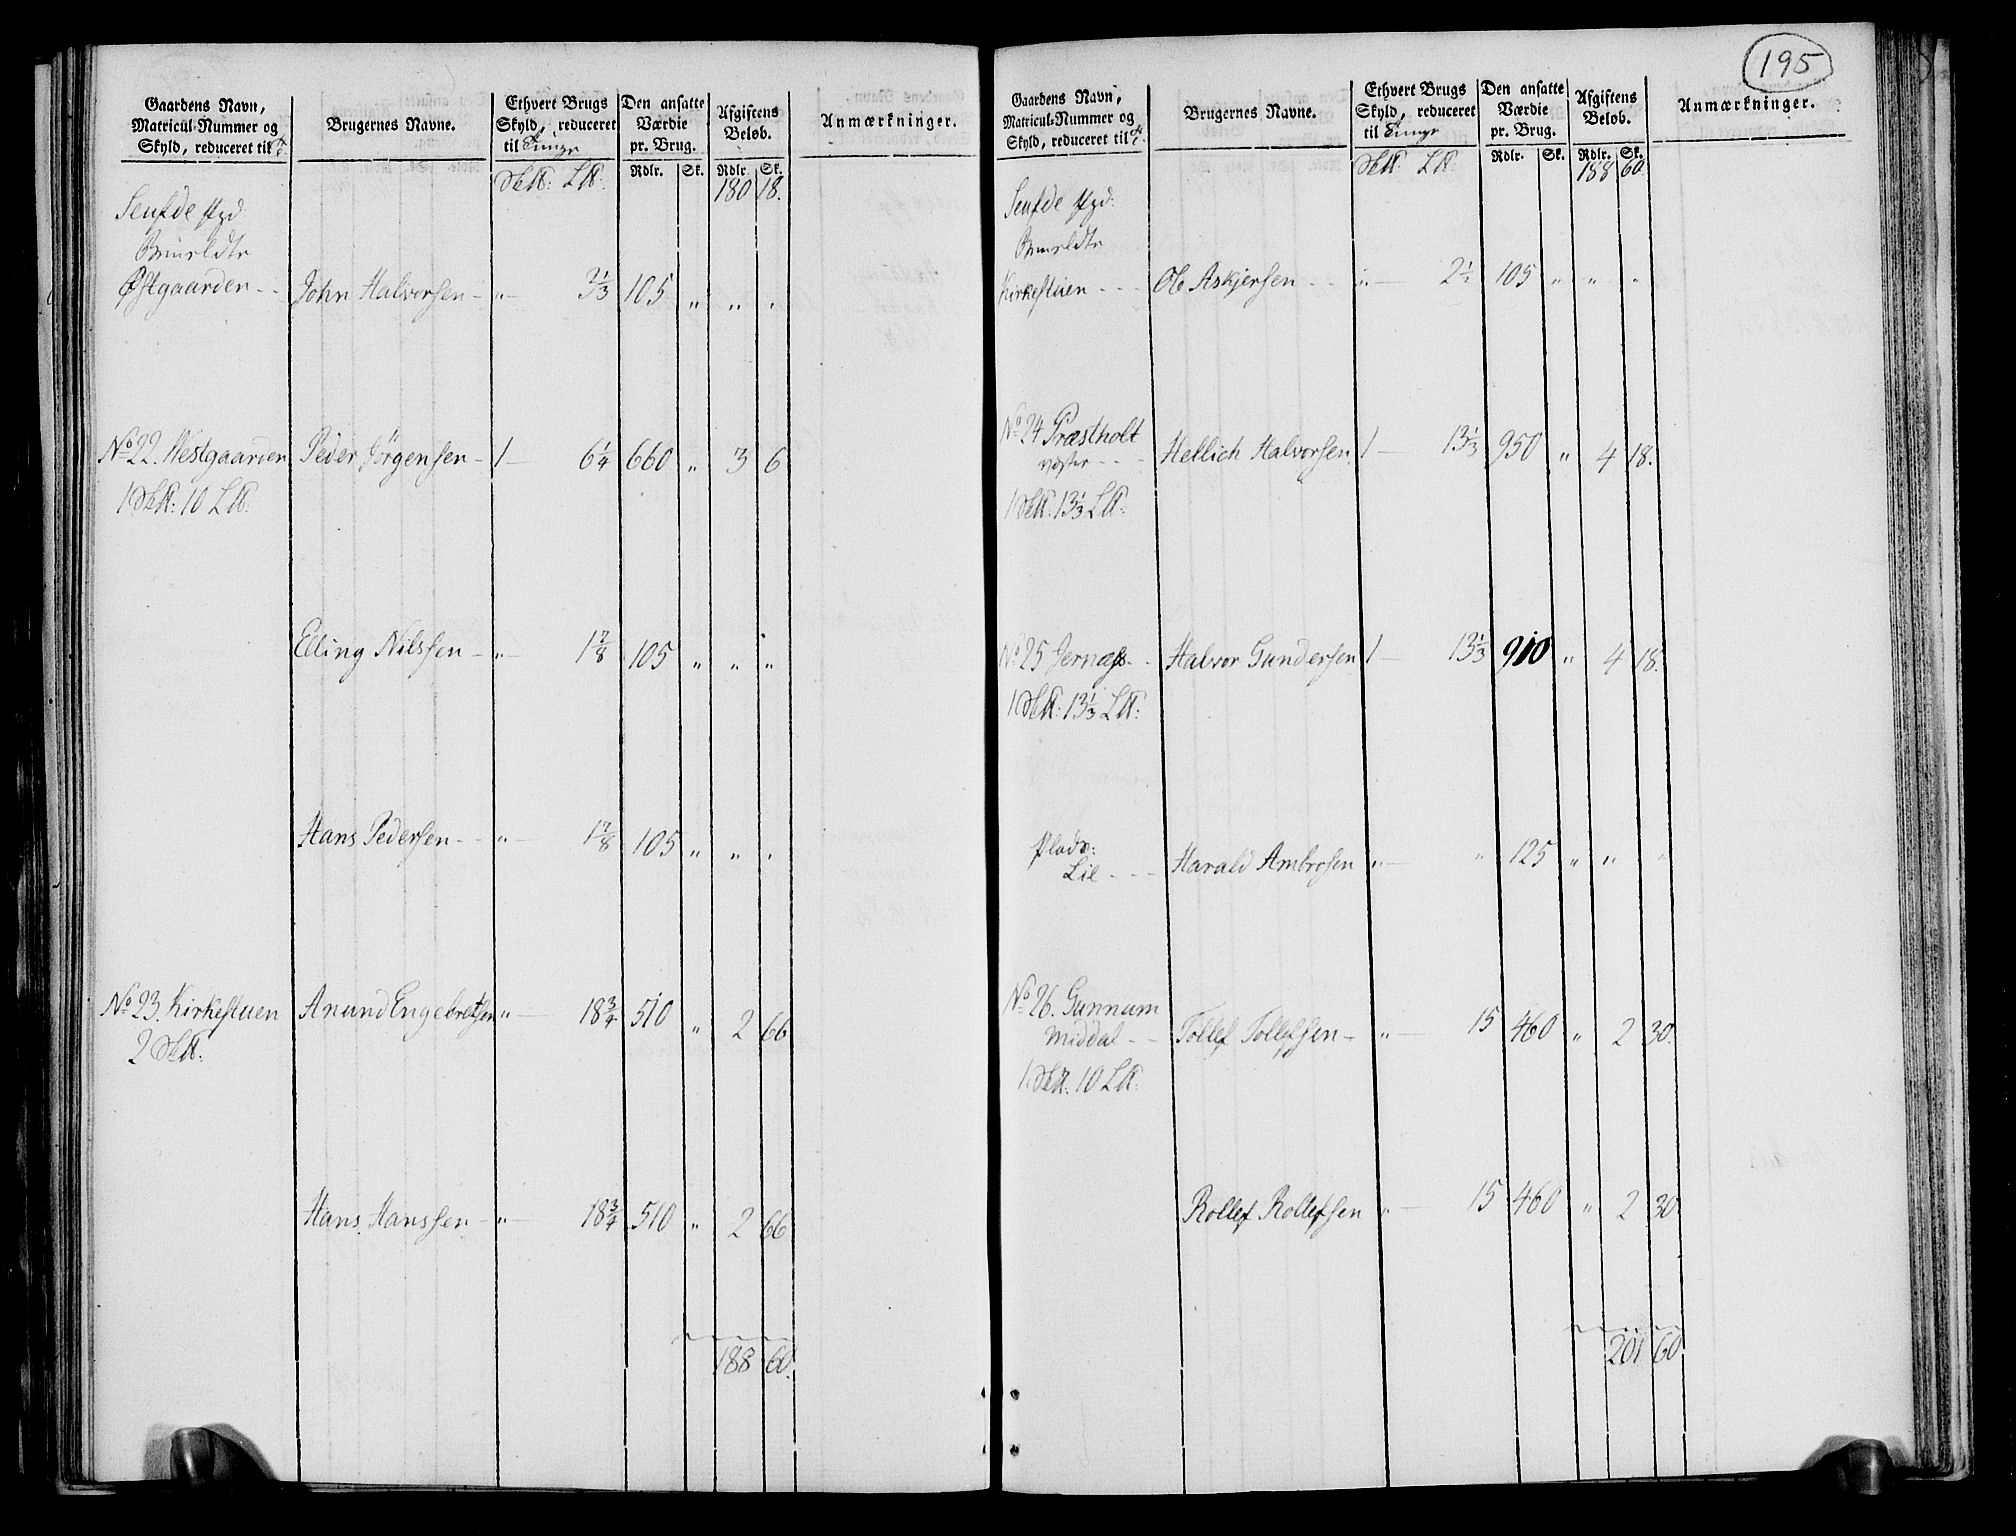 195
Gaardens Navn, Matricul-Nummer og Skyld, reduceret til
Brugernes Navne.
Ethvert Brugs Skyld, reduceret til
Den ansatte Værdie pr. Brug.
Afgiftens Beløb.
Anmærkninger.
Rdlr. Sk. Rdlr. Sk.
180 18.
Østgaarden - - John Halvorsen - " 3 1/3 105 " " "
No 22. Westgaarden Peder Jörgensen - 1 - 6 1/4 660 " 3 6
Elling Nilssen - " - 1 7/8 105 " " "
Hans Pedersen - - " - 1 7/8 105 " " "
No 23. Kirkestuen Anund Engebretsen " - 18 3/4 510 " 2 66
Hans Hanssen - " - 18 3/4 510 " 2 66
188 60.
Gaardens Navn, Matricul-Nummer og Skyld, reduceret til
Brugernes Navne.
Ethvert Brugs Skyld, reduceret til
Den ansatte Værdie pr. Brug.
Afgiftens Beløb.
Anmærkninger.
Rdlr. Sk. Rdlr. Sk.
188 60.
Kirkestuen - - - Ole Askjersen - - " - 2 1/2 105 " " "
No 24 Præstholt
Hellich Halvorsen 1 - 13 1/3 950 " 4 18.
No 25 Jernæss - - Halvor Gundersen 1 - 13 1/3 910 " 4 18.
Lie - - - Harald Ambrosen " - " 125 " " "
No 26. Gunnum
Middal - - Tollef Tollefsen - " - 15 460 " 2 30.
Rollef Rollefsen " - 15 460 " 2 30
201 60